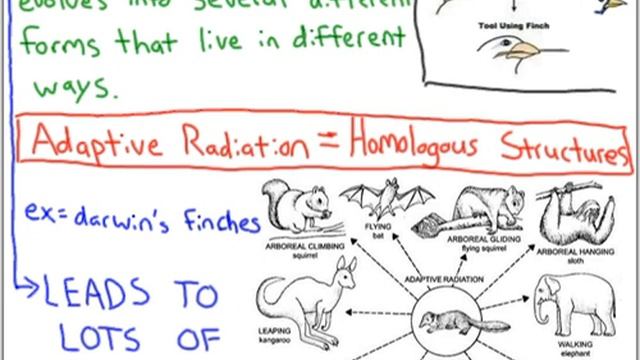 evolves into several different
forms that live in different
ways.
Tool Using Finch
Adaptive Radiation = Homologous Structures
ex= darwin's finches
ARBOREAL CLIMBING
squirrel
FLYING
bat
ARBOREAL GLIDING
flying squirrel
ARBOREAL HANGING
sloth
ADAPTIVE RADIATION
LEAPING
kangaroo
WALKING
elephant
LEADS TO
LOTS OF